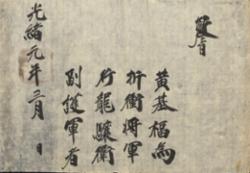 教旨
黃基福爲
折衝將軍
行龍驤衛
副護軍者
光緖元年三月 日